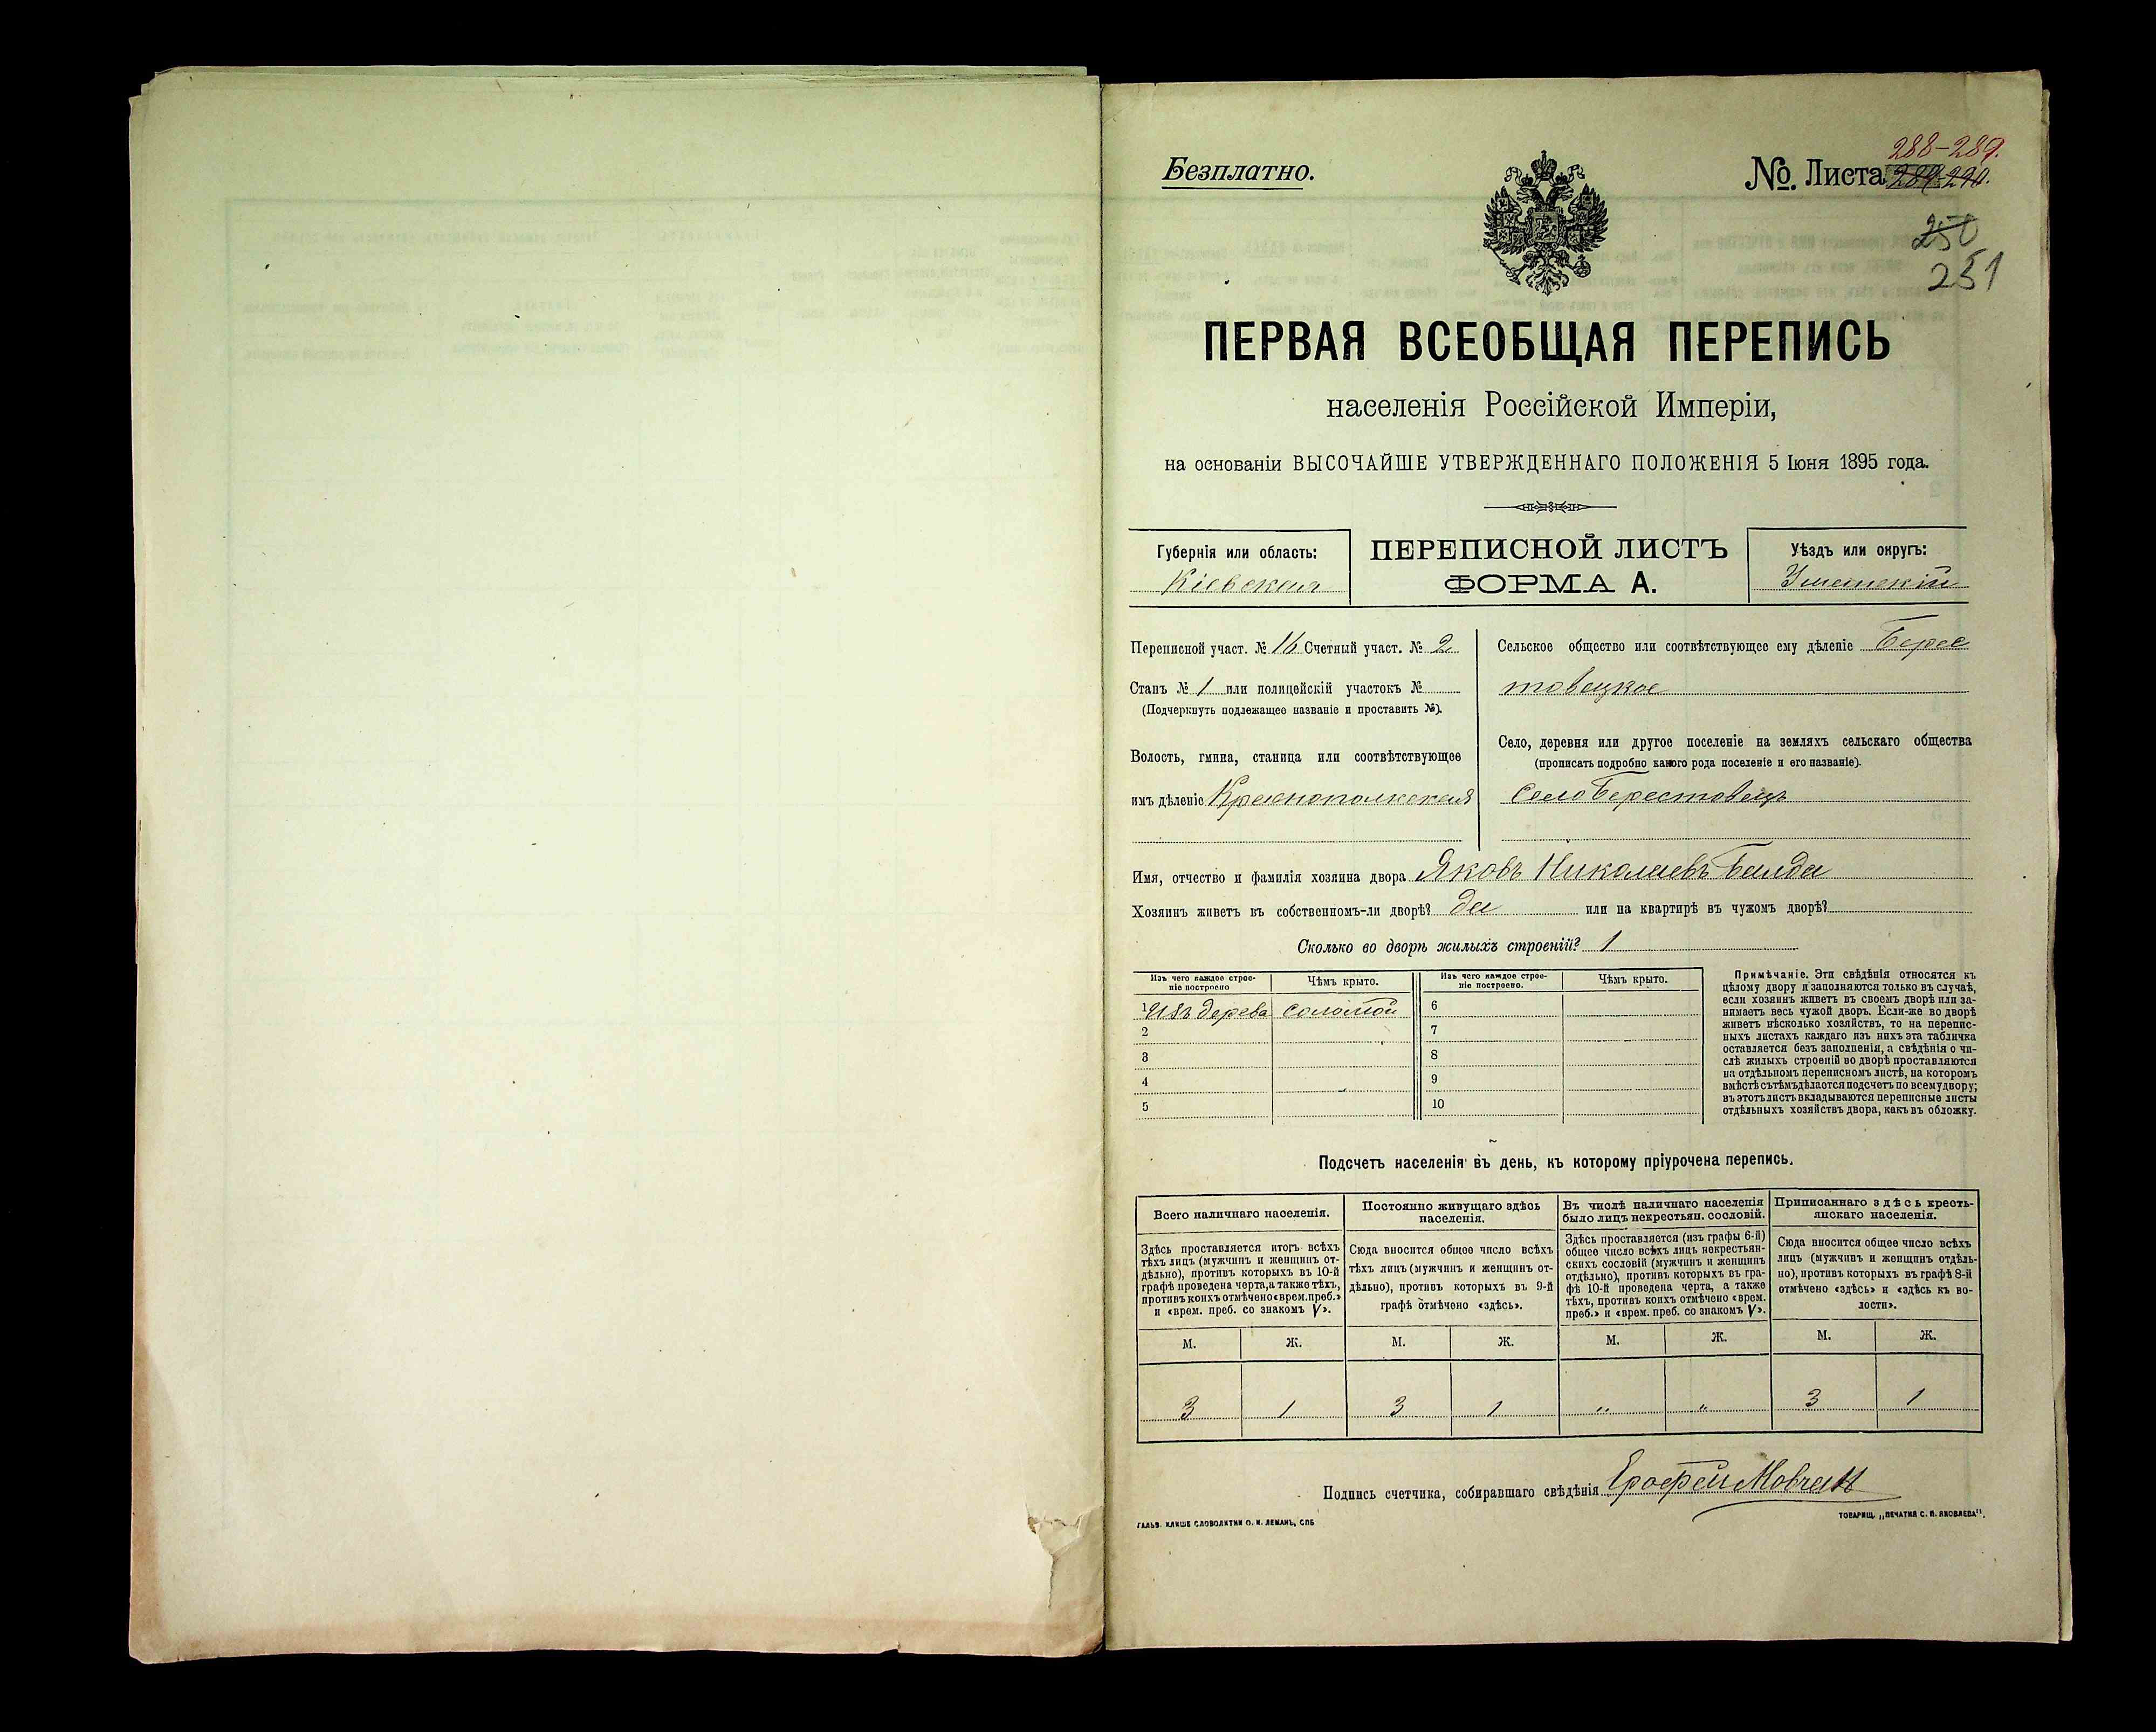 Безплатно.
№ Листа 288-289.
250
251
ПЕРВАЯ ВСЕОБЩАЯ ПЕРЕПИСЬ
населенія Россійской Имперіи,
на основаніи ВЫСОЧАЙШЕ УТВЕРЖДЕННАГО ПОЛОЖЕНІЯ 5 Іюня 1895 года.
Губернія или область:
Кіевская
ПЕРЕПИСНОЙ ЛИСТЪ
ФОРМА А.
Уѣздъ или округъ:
Уманскій
Переписной участ. № 16 Счетный участ. № 2
Станъ № 1 или полицейскій участокъ №
(Подчеркнуть подлежащее названіе и проставить №).
Волость, гмина, станица или соотвѣтствующее
имъ дѣленіе Краснополкская
Сельское общество или соотвѣтствующее ему дѣленіе Берес
товецкое
Село, деревня или другое поселеніе на земляхъ сельскаго общества
(прописать подробно какого рода поселеніе и его названіе).
Село Берестовецъ
Имя, отчество и фамилія хозяина двора Яковъ Николаевъ Балда
Хозяинъ живетъ въ собственномъ-ли дворѣ? да или на квартирѣ въ чужомъ дворѣ?
Сколько во дворѣ жилыхъ строеній? 1
Изъ чего каждое строе-
ніе построено
Чѣмъ крыто.
Изъ чего каждое строе-
ніе построено.
Чѣмъ крыто.
1 Изъ дерева соломой 6
2 7
3 8
4 9
5 10
Примѣчаніе. Эти свѣдѣнія относятся къ
цѣлому двору и заполняются только въ случаѣ,
если хозяинъ живетъ въ своемъ дворѣ или за-
нимаетъ весь чужой дворъ. Если-же во дворѣ
живетъ нѣсколько хозяйствъ, то на перепис-
ныхъ листахъ каждаго изъ нихъ эта табличка
оставляется безъ заполненія, а свѣдѣнія о чи-
слѣ жилыхъ строеній во дворѣ проставляются
на отдѣльномъ переписномъ листѣ, на которомъ
вмѣстѣ съ тѣмъ дѣлается подсчетъ по всему двору;
въ этотъ листъ вкладываются переписные листы
отдѣльныхъ хозяйствъ двора, какъ въ обложку.
Подсчетъ населенія въ день, къ которому пріурочена перепись.
Всего наличнаго населенія.
Здѣсь проставляется итогъ всѣхъ
тѣхъ лицъ (мужчинъ и женщинъ от-
дѣльно), противъ которыхъ въ 10-й
графѣ проведена черта, а также тѣхъ,
противъ коихъ отмѣчено «врем. преб.»
и «врем. преб. со знакомъ V».
Постоянно живущаго здѣсь
населенія.
Сюда вносится общее число всѣхъ
тѣхъ лицъ (мужчинъ и женщинъ от-
дѣльно), противъ которыхъ въ 9-й
графѣ отмѣчено «здѣсь».
Въ числѣ наличнаго населенія
было лицъ некрестьян. сословій.
Здѣсь проставляется (изъ графы 6-й)
общее число всѣхъ лицъ некрестьян-
скихъ сословій (мужчинъ и женщинъ
отдѣльно), противъ которыхъ въ гра-
фѣ 10-й проведена черта, а также
тѣхъ, противъ коихъ отмѣчено «врем.
преб.» и «врем. преб. со знакомъ V».
Приписаннаго здѣсь кресть-
янскаго населенія.
Сюда вносится общее число всѣхъ
лицъ (мужчинъ и женщинъ отдѣль-
но), противъ которыхъ въ графѣ 8-й
отмѣчено «здѣсь» и «здѣсь къ во-
лости».
М. Ж. М. Ж. М. Ж. М. Ж.
3 1 3 1 „ „ 3 1
Подпись счетчика, собиравшаго свѣдѣнія Ерофей Мовчан
ГАЛЬВ. КЛИШЕ СЛОВОЛИТНИ О. И. ЛЕМАНЪ, СПБ
ТОВАРИЩ. „ПЕЧАТНЯ С. П. ЯКОВЛЕВА".